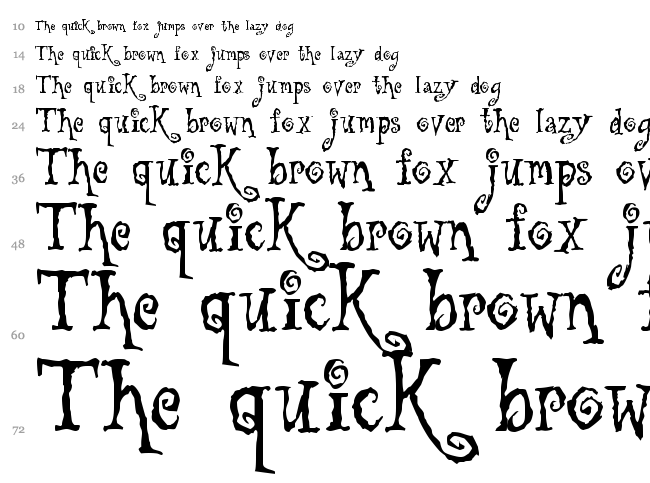 10 The quick brown fox jumps over the lazy dog
14 The quick brown fox jumps over the lazy dog
18 The quick brown fox jumps over the lazy dog
24 The quick brown fox jumps over the lazy dog
36 The quick brown fox jumps ov
48 The quick brown fox ju
60 The quick brown f
72 The quick brow